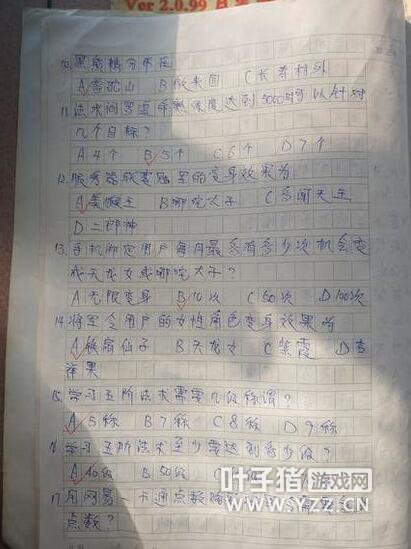 Ver 2.0.99
10. 黑熊精分布在
A 雪砣山 B 傲来国 C 长寿村外
11. 法术阎罗令在熟练度达到5000时可以针对
几个目标?
A 4个 B 5个 C 6个 D 7个
12. 服务器欢变卡里的变身效果为
A 美猴王 B 哪吒太子 C 多闻天王
D 二郎神
13. 手机绑定用户每月最多有多少次机会变
成天龙女或哪吒太子?
A 无限变身 B 10次 C 50次 D 100次
14. 将军令用户的女性角色变身效果为
A 铁扇仙子 B 天龙女 C 紫霞 D 李
祥果
15. 学习五阶法术需要几级称谓?
A 5称 B 7称 C 8称 D 9称
16 学习五阶法术至少要达到多少级?
A 40级 B 50级
17. 用网易一卡通点数
点数?
叶子猪游戏网
www.YZZ.CN